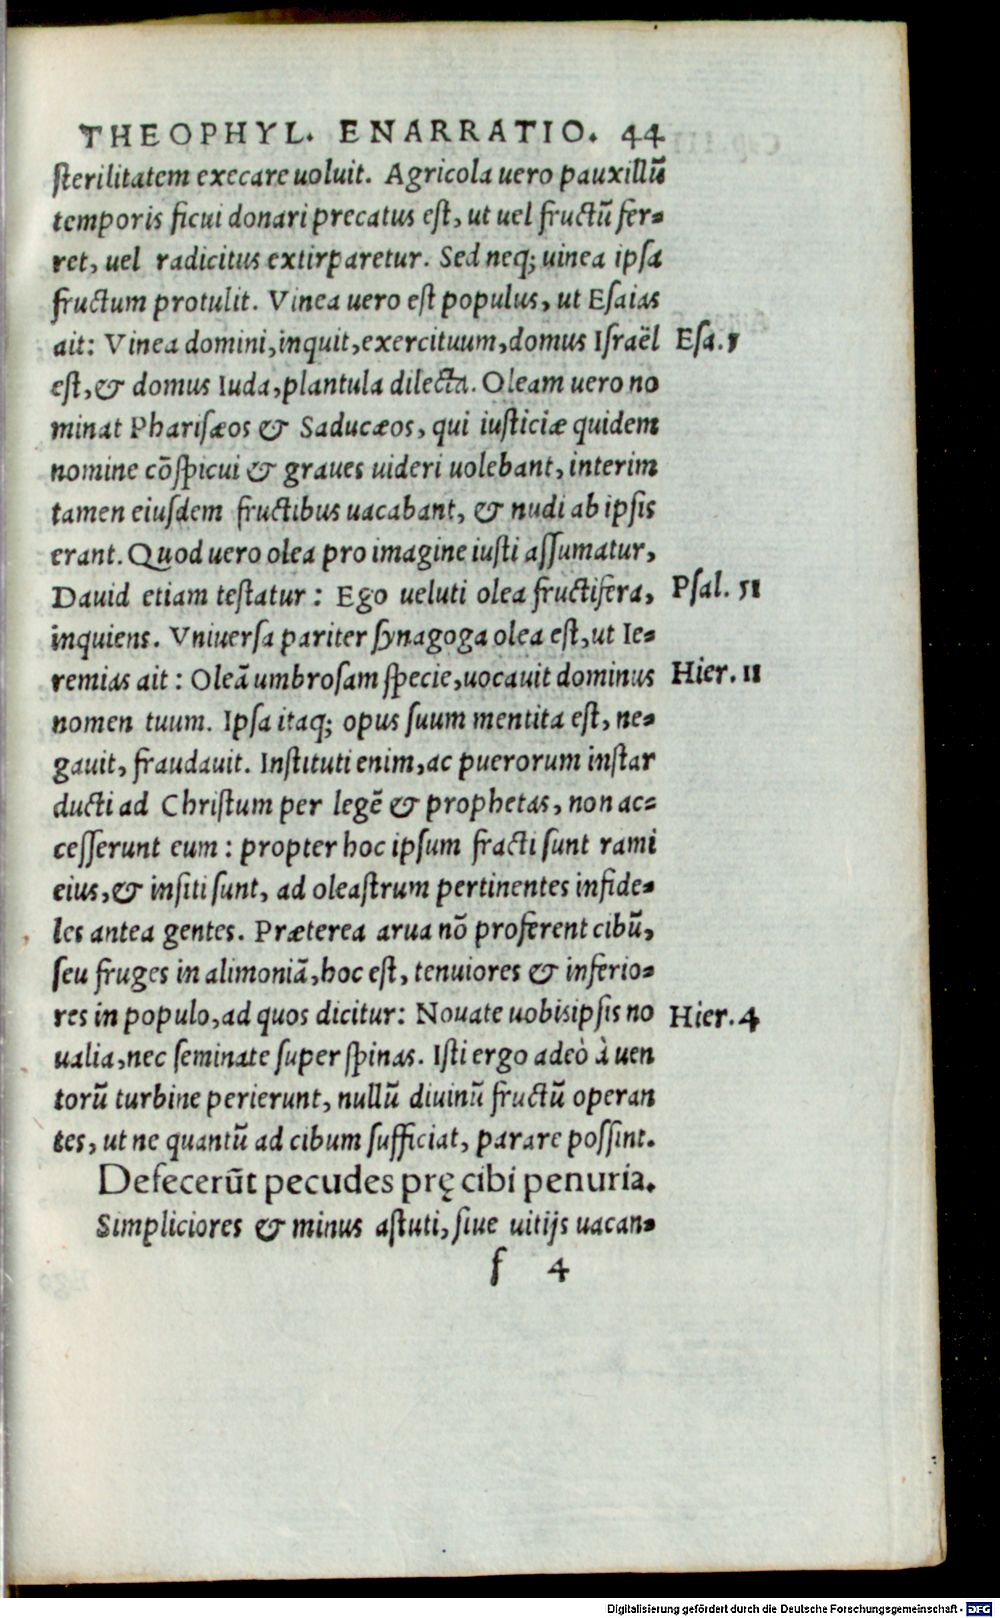 THEOPHYL. ENARRATIO. 44
sterilitatem execare uoluit. Agricola uero pauxillũ
temporis ficui donari precatus est, ut uel fructũ fer-
ret, uel radicitus extirparetur. Sed neq; uinea ipsa
fructum protulit. Vinea uero est populus, ut Esaias
ait: Vinea domini, inquit, exercituum, domus Israël Esa.5
est, & domus Iuda, plantula dilecta. Oleam uero no
minat Pharisæos & Saducæos, qui iusticiæ quidem
nomine cõspicui & graues uideri uolebant, interim
tamen eiusdem fructibus uacabant, & nudi ab ipsis
erant. Quod uero olea pro imagine iusti assumatur,
Dauid etiam testatur: Ego ueluti olea fructifera, Psal. 51
inquiens. Vniuersa pariter synagoga olea est, ut Ie-
remias ait: Oleã umbrosam specie, uocauit dominus Hier. 11
nomen tuum. Ipsa itaq; opus suum mentita est, ne-
gauit, fraudauit. Instituti enim, ac puerorum instar
ducti ad Christum per legẽ & prophetas, non ac-
cesserunt eum: propter hoc ipsum fracti sunt rami
eius, & insiti sunt, ad oleastrum pertinentes infide-
les antea gentes. Præterea arua nõ proferent cibũ,
seu fruges in alimoniã, hoc est, tenuiores & inferio-
res in populo, ad quos dicitur: Nouate uobisipsis no Hier.4
ualia, nec seminate super spinas. Isti ergo adeò à uen
torũ turbine perierunt, nullũ diuinũ fructũ operan
tes, ut ne quantũ ad cibum sufficiat, parare possint.
Defecerũt pecudes prę cibi penuria.
Simpliciores & minus astuti, siue uitijs uacan-
f 4
Digitalisierung gefördert durch die Deutsche Forschungsgemeinschaft - DFG